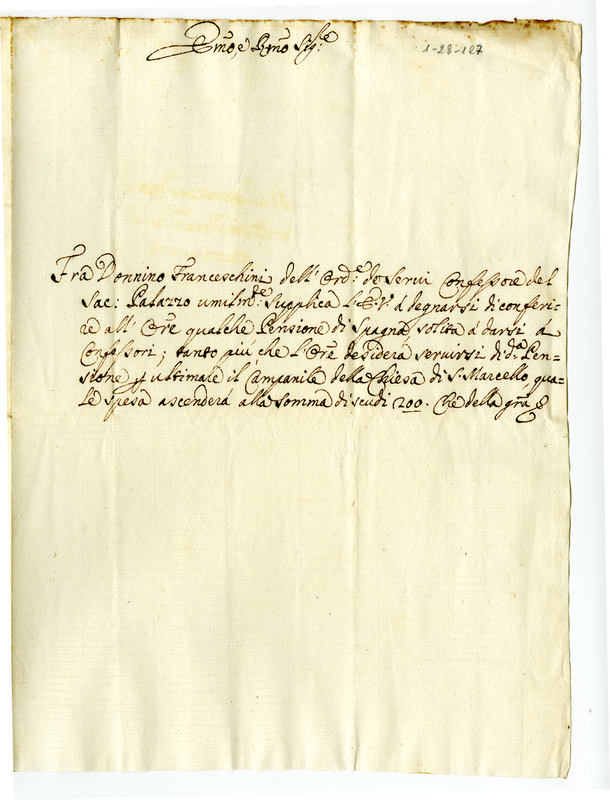 Emo, e Rmo Sigre
1-28-127
Fra Donnino Franceschini dell' Orde de Servi Confessore del
Sac: Palazzo umilmte Supplica l'E.V. a degnarsi di conferi-
re all' Ore qualche Pensione di Spagna solita a darsi a
Confessori; tanto più che l'Ore desidera servirsi di da Pen-
sione p ultimare il Campanile della Chiesa di S. Marcello, qua-
le spesa ascenderà alla somma di scudi 200. Che della gra